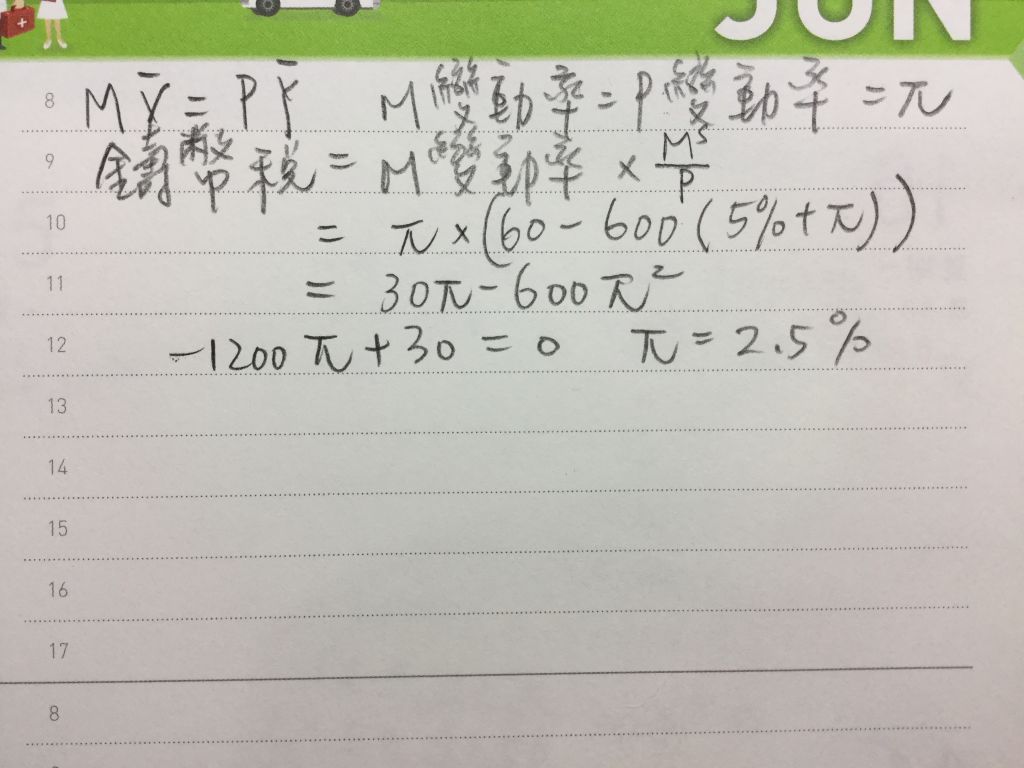 JUN
8 MȲ = PȲ M變動率 = P變動率 = π
9 鑄幣稅 = M變動率 × M^s/P
10 = π × (60 - 600 (5% + π))
11 = 30π - 600π²
12 -1200π + 30 = 0 π = 2.5%
13
14
15
16
17
8